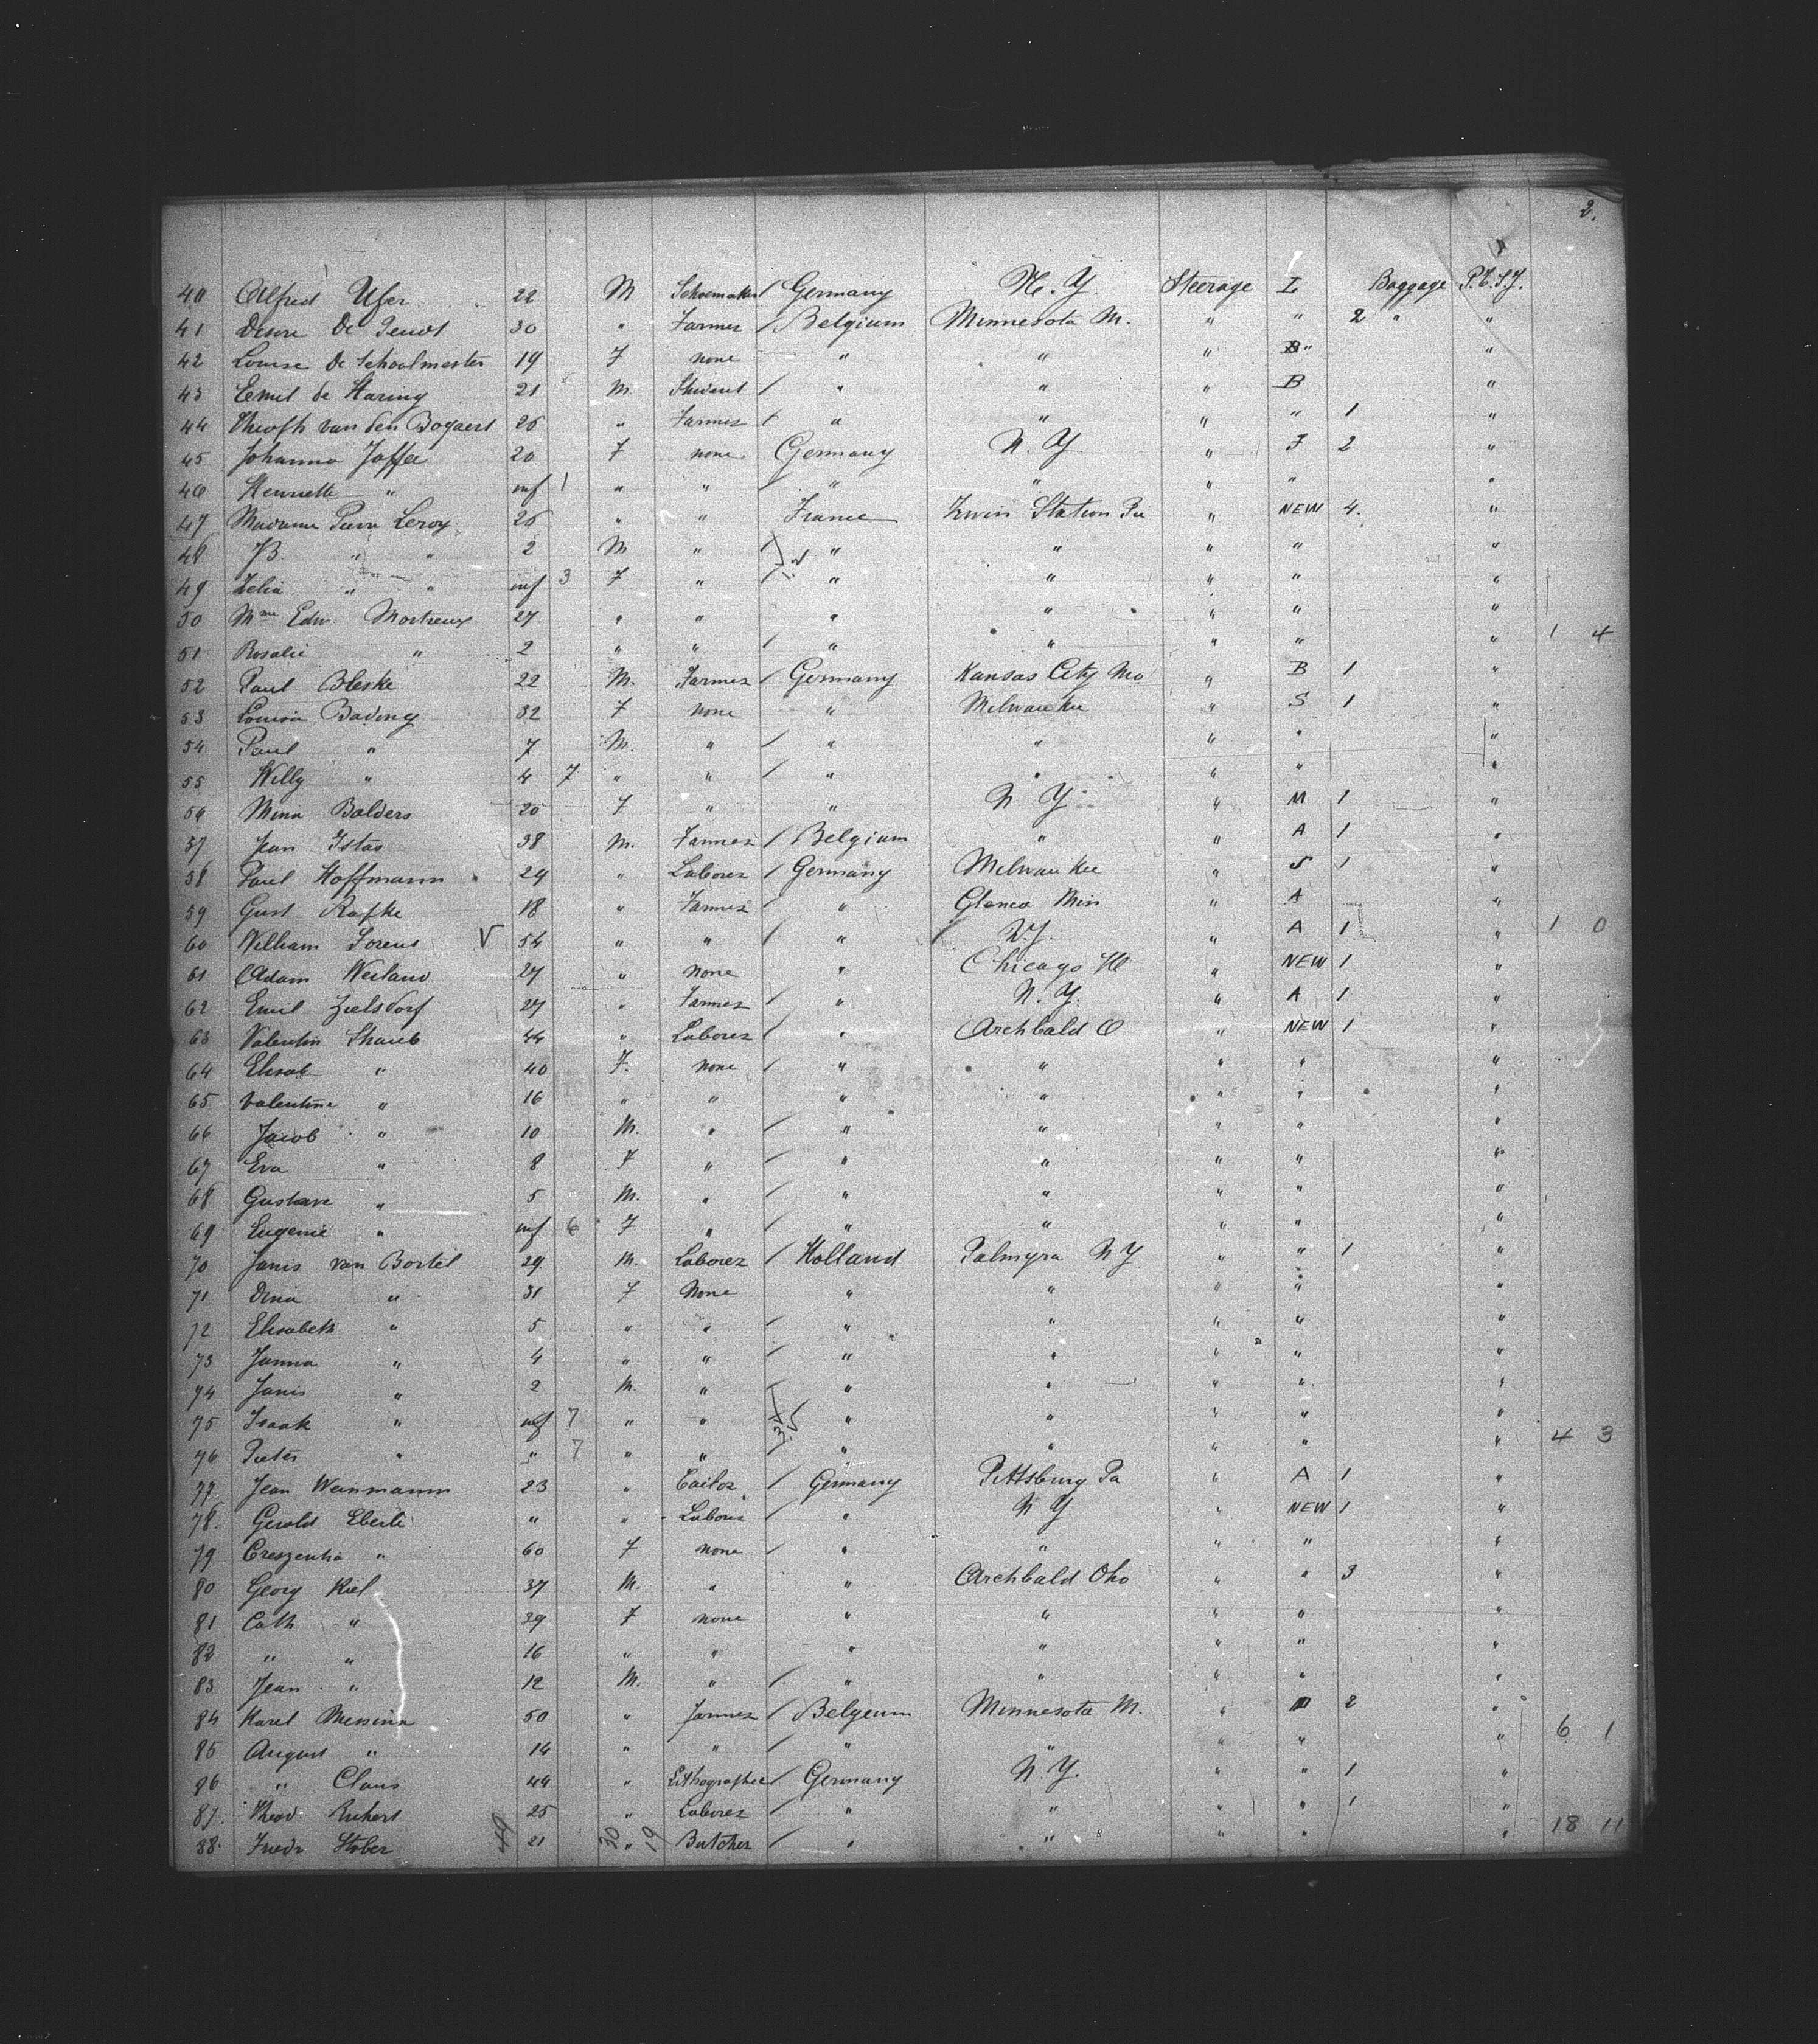 2.
40 Alfred Ufer 22 M Schoemaker / Germany N. Y. Steerage I Baggage P.T.S.Y.
41 Desire De Pendt 30 " Farmer / Belgium Minnesota M. " " 2 " "
42 Louise De Schoolmester 19 F none — " " " B " "
43 Eemil de Haring 21 M. Student / " " " B "
44 Theoph van den Bogaert 26 " Farmer / " " " " 1 "
45 Johanna Joffee 20 F none Germany N. Y. " F 2 "
46 Henriette " inf 1 " " / " " " " "
47 Madame Pierre Leroy 26 " " France Irwin Station Pa " NEW 4. "
48 JB " " 2 M " / " " " " "
49 Zelia " " inf 3 F " / " " " " "
50 Mme Edw. Mortreux 27 " " " " " " "
51 Rosalie " 2 " " / " " " " " 1 4
52 Paul Bleske 22 M. Farmer / Germany Kansas City Mo " B 1 "
53 Louisa Bading 32 F none " Milwaukee " S 1 "
54 Paul " 7 M. " / " " " " "
55 Willy " 4 7 " " / " " " " "
56 Mina Bolders 20 F " " N Y " M 1 "
57 Jean Istas 38 M. Farmer / Belgium " " A 1 "
58 Paul Hoffmann 29 " Laborer / Germany Milwaukee " S 1 "
59 Gust Rafke 18 " Farmer / " Glencoe Min " A "
60 William Lorens V 54 " " / " N.Y. " A 1 " 1 0
61 Adam Weiland 27 " none " Chicago Ill " NEW 1 "
62 Emil Zielsdorf 27 " Farmer / " N. Y. " A 1 "
63 Valentin Schaub 44 " Laborer / " Archbald O " NEW 1 "
64 Elisab " 40 F. none / " " " " "
65 Valentine " 16 " " " " " " "
66 Jacob " 10 M. " / " " " " "
67 Eva " 8 F " / " " " " "
68 Gustave " 5 M. " / " " " " "
69 Eugenie " inf 6 F " / " " " " "
70 Janis van Bortel 29 M. Laborer / Holland Palmyra N Y " " 1 "
71 Dina " 31 F None " " " " "
72 Elisabeth " 5 " " / " " " " "
73 Janna " 4 " " / " " " " "
74 Janis " 2 M. " / " " " " "
75 Isaak " inf 7 " " " " " " " 4 3
76 Pieter " " 7 " " / " " " " "
77 Jean Weinmann 23 " Tailor / Germany Pittsburg Pa " A 1 "
78. Gerold Eberle " " Laborer " N Y " NEW 1 "
79 Creszentia " 60 F none / " " " " "
80 Georg Riel 37 M. " " Archbald Oho " " 3 "
81 Cath " 39 F none " " " " "
82 " " 16 " " " " " " "
83 Jean " 12 M. " / " " " " "
84 Karel Messina 50 " Farmer / Belgium Minnesota M. " " 2 " 6 1
85 August " 14 " " / " " " " "
86 " Claus 44 " Lithographer / Germany N Y. " " 1 "
87. Theod. Ruhert 25 " Laborer / " " " " 1 "
88. Friedr Stober 49 21 30 " 19 Butcher / " " " " " 18 11